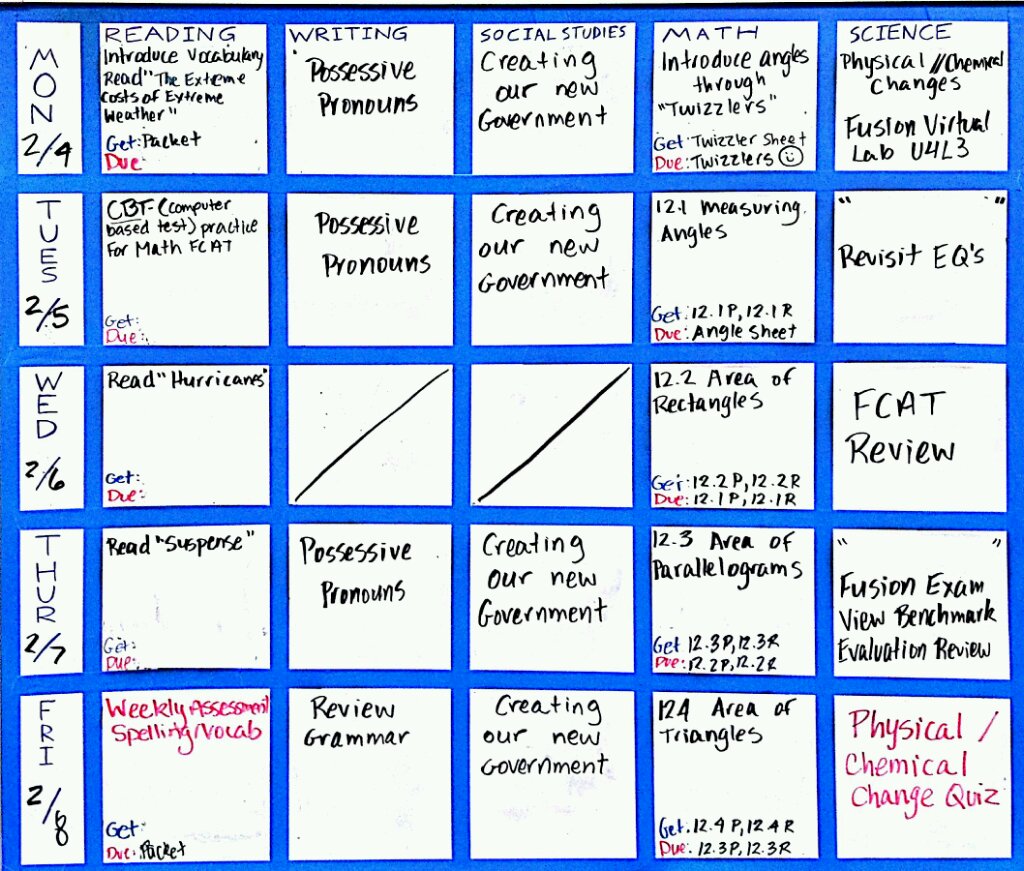 READING
WRITING
SOCIAL STUDIES
MATH
SCIENCE
MON
2/4
Introduce Vocabulary
Read "The Extreme
Costs of Extreme
Weather"
Get: Packet
Due
Possessive
Pronouns
Creating
our new
Government
Introduce angles
through
"Twizzlers"
Get Twizzler Sheet
Due: Twizzlers ☺
Physical //Chemical
Changes
Fusion Virtual
Lab U4L3
TUES
2/5
CBT- (computer
based test) practice
For Math FCAT
Get:
Due:
Possessive
Pronouns
Creating
our new
Government
12.1 Measuring
Angles
Get: 12.1P, 12.1R
Due: Angle Sheet
" "
Revisit EQ's
WED
2/6
Read "Hurricanes"
Get:
Due:
12.2 Area of
Rectangles
Get: 12.2P, 12.2R
Due: 12.1P, 12.1R
FCAT
Review
THUR
2/7
Read "Suspense"
Get:
Due:
Possessive
Pronouns
Creating
our new
Government
12.3 Area of
Parallelograms
Get 12.3P, 12.3R
Due: 12.2P, 12.2R
" "
Fusion Exam
View Benchmark
Evaluation Review
FRI
2/8
Weekly Assessment
Spelling/Vocab
Get:
Due: Packet
Review
Grammar
Creating
our new
Government
12.4 Area of
Triangles
Get: 12.4P, 12.4R
Due: 12.3P, 12.3R
Physical /
Chemical
Change Quiz